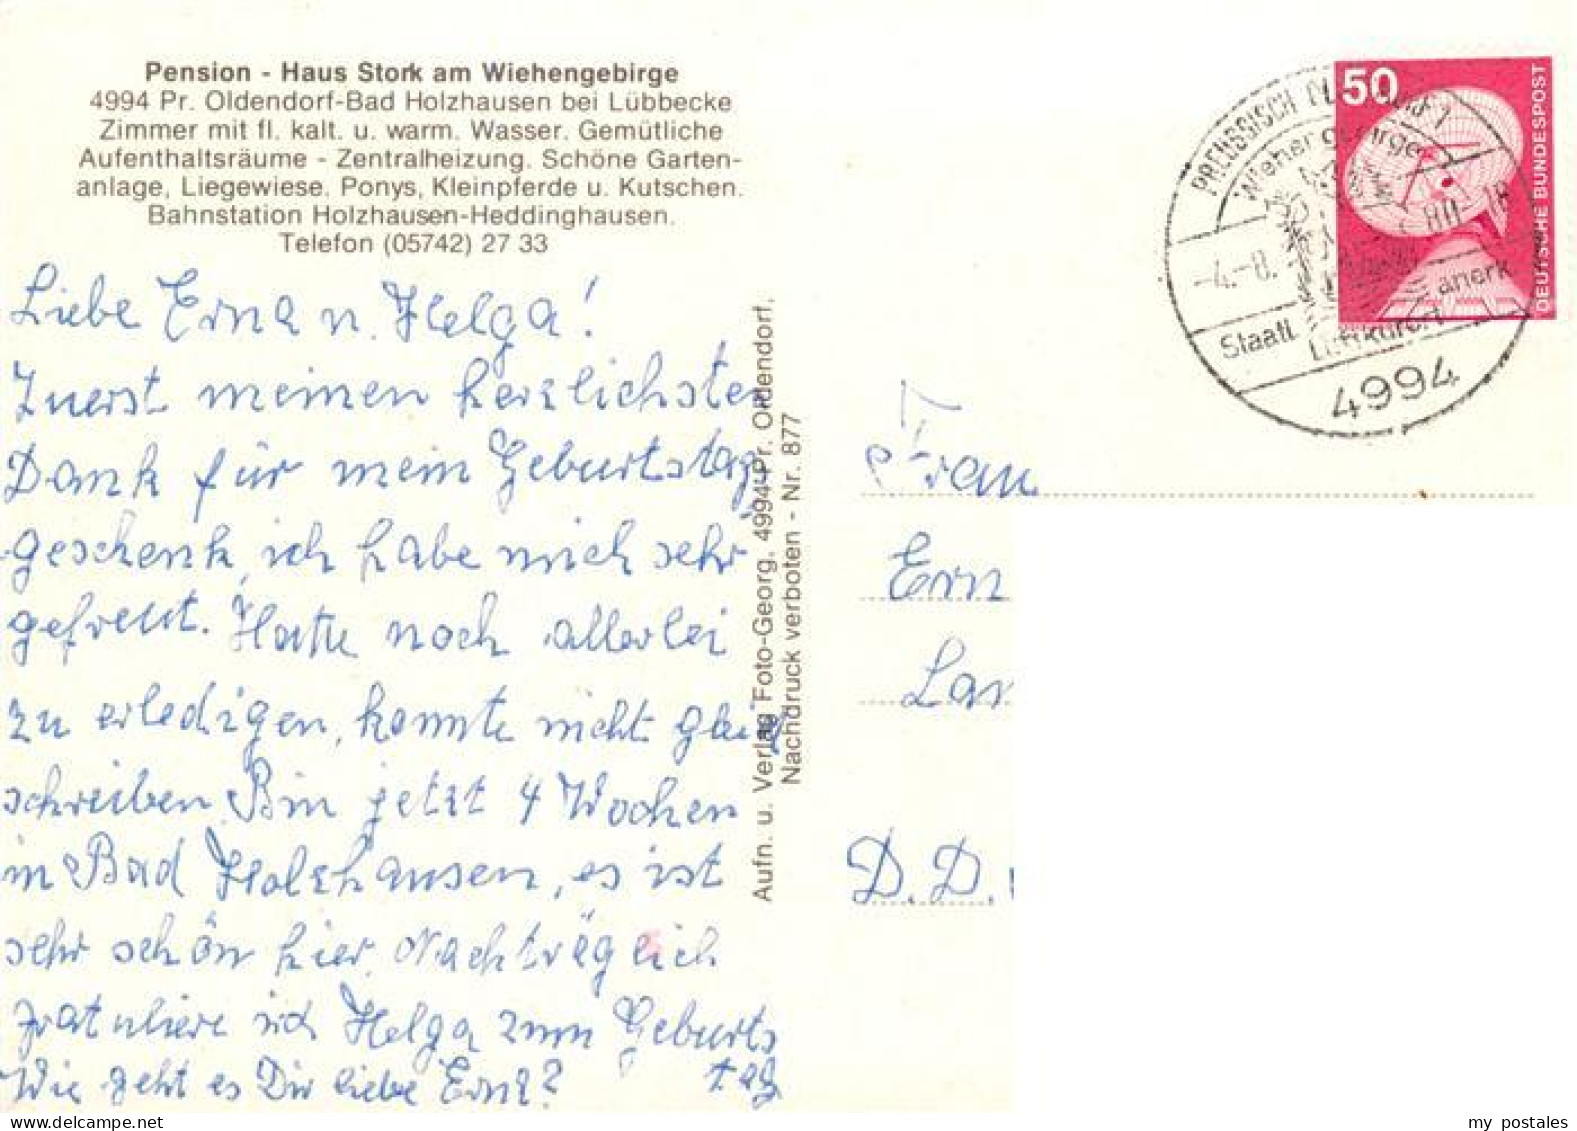 Pension - Haus Stork am Wiehengebirge
4994 Pr. Oldendorf-Bad Holzhausen bei Lübbecke
Zimmer mit fl. kalt. u. warm. Wasser. Gemütliche
Aufenthaltsräume - Zentralheizung. Schöne Garten-
anlage, Liegewiese. Ponys, Kleinpferde u. Kutschen.
Bahnstation Holzhausen-Heddinghausen.
Telefon (05742) 27 33
Liebe Erna u. Helga!
Zuerst meinen herzlichsten
Dank für mein Geburtstag
geschenk, ich habe mich sehr
gefreut. Hatte noch allerlei
zu erledigen, konnte nicht gleich
schreiben. Bin jetzt 4 Wochen
in Bad Holzhausen, es ist
sehr schön hier. Nachträglich
gratuliere ich Helga zum Geburts
tag
Wie geht es Dir liebe Erna?
Aufn. u. Verlag Foto-Georg. 4994 Pr. Oldendorf.
Nachdruck verboten - Nr. 877
50
DEUTSCHE BUNDESPOST
PREUSSISCH OLDENDORF 1
Wiehengebirge
-4.-8. 80-18
Staatl. anerk.
Luftkurort
4994
Frau
Ern
Lan
D.D.
my postales